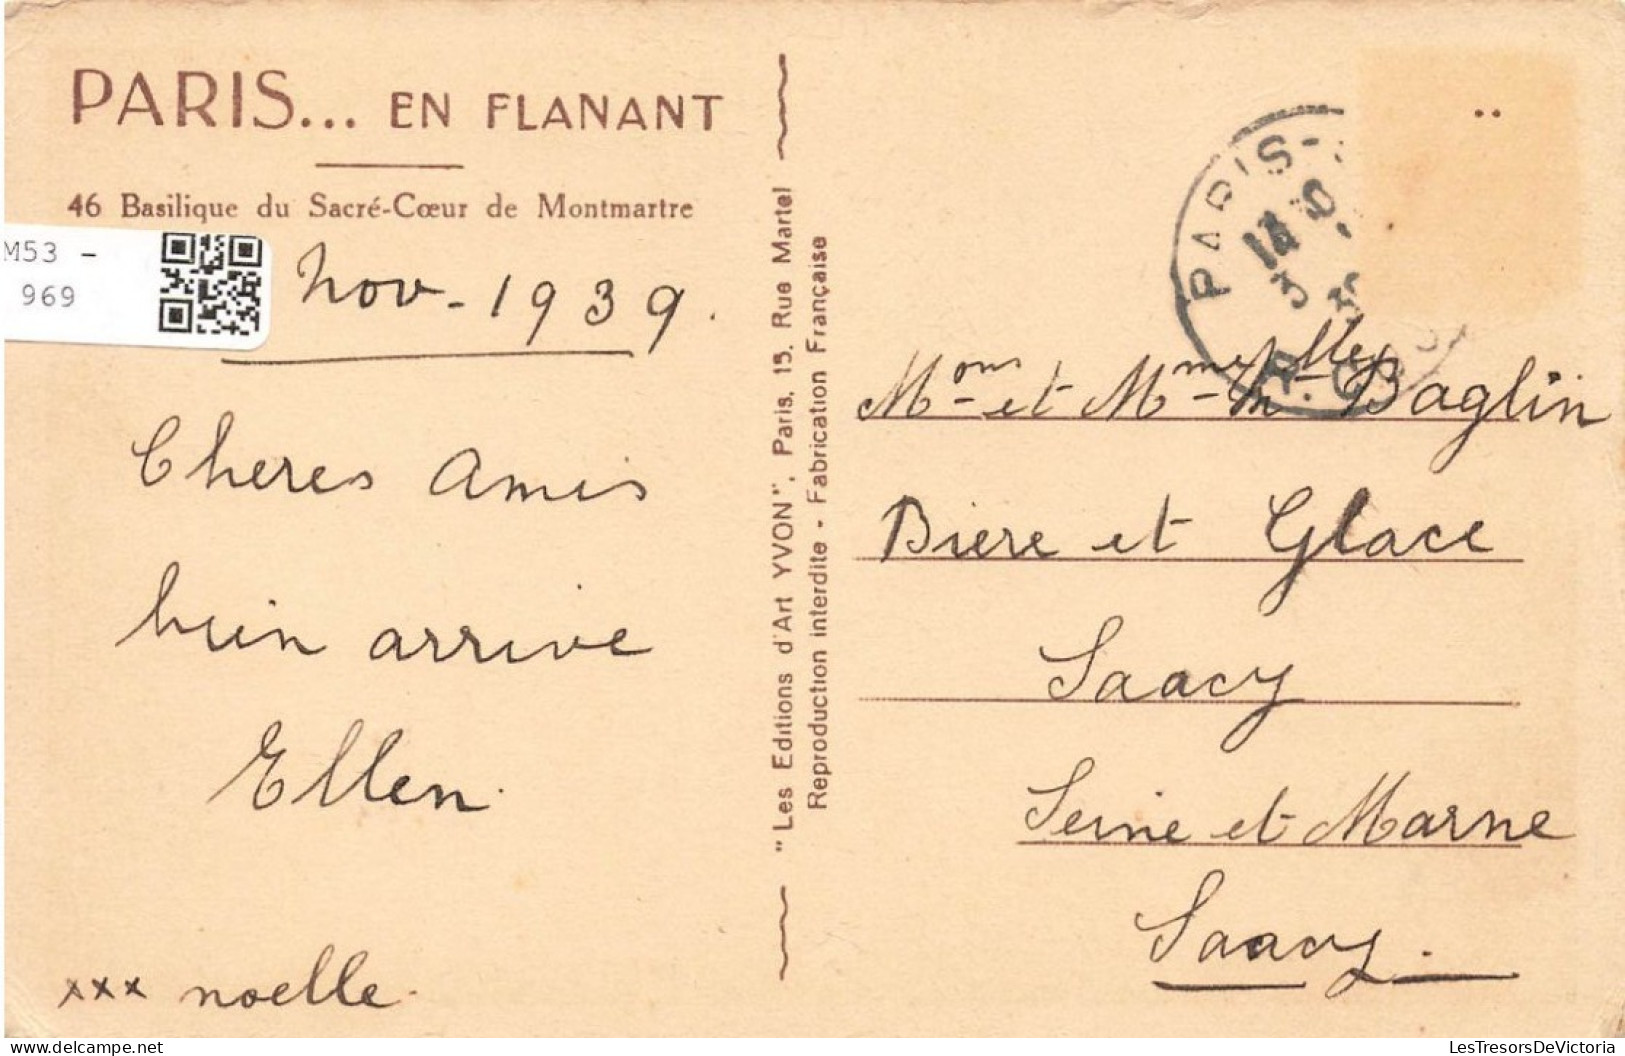 PARIS... EN FLANANT
46 Basilique du Sacré-Cœur de Montmartre
M53 -
969
Nov - 1939.
Cheres Amis
bien arrive
Ellen.
xxx noelle.
"Les Editions d'Art YVON", Paris, 15, Rue Martel
Reproduction interdite - Fabrication Française
PARIS-
3
Mons et Mme Mlle Baglin
Biere et Glace
Saacy
Seine et Marne
Saacy.
LesTresorsDeVictoria